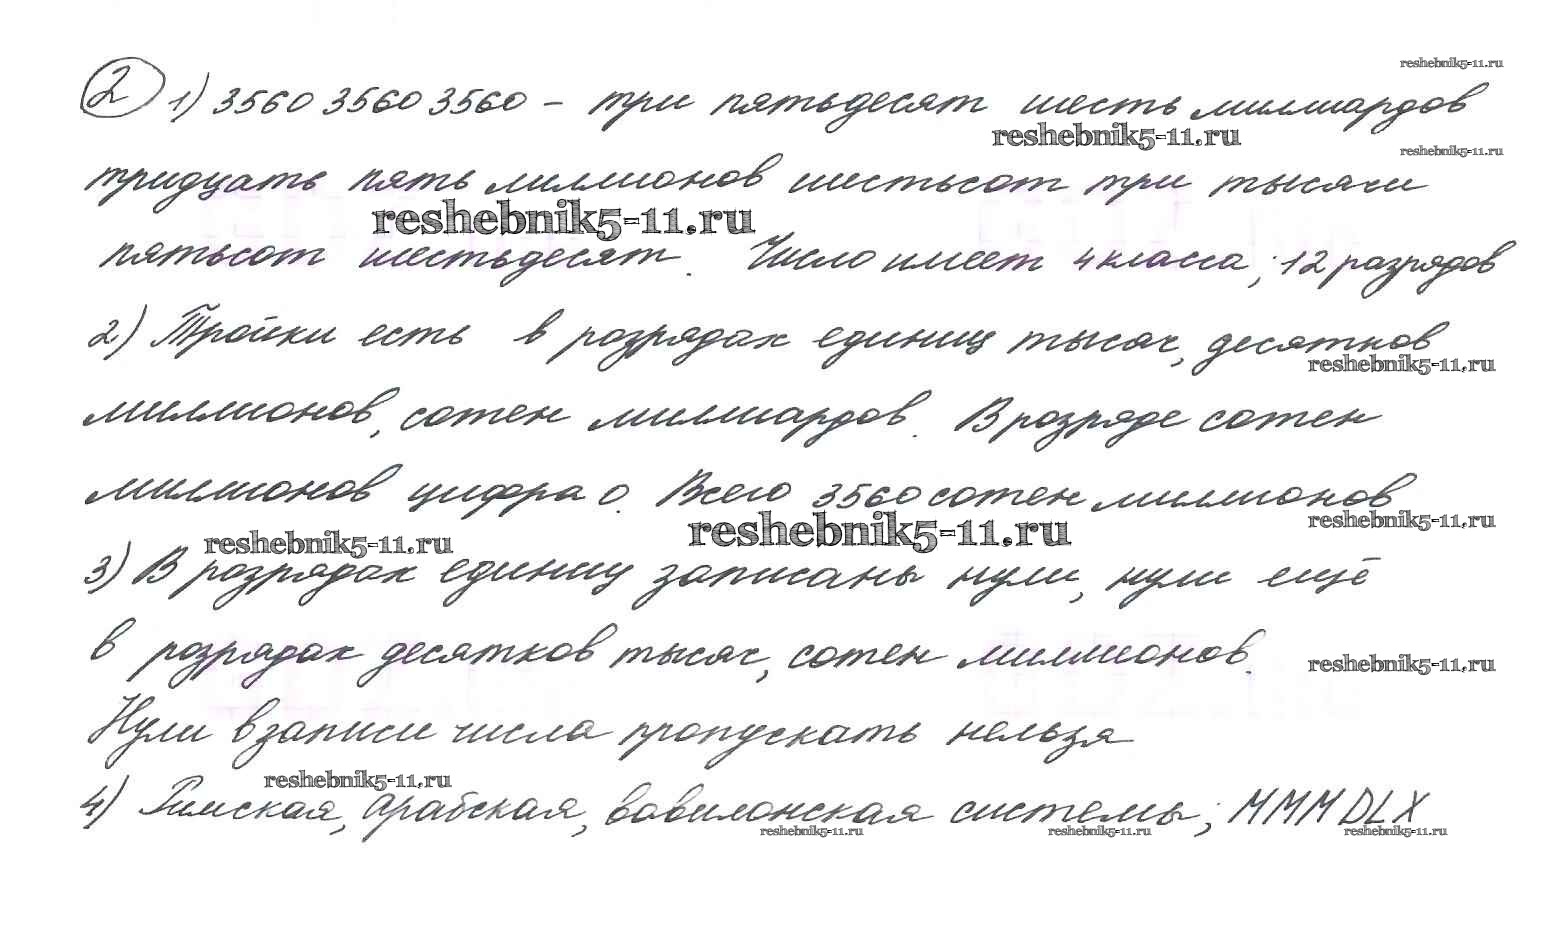 reshebnik5-11.ru
2 1) 3560 3560 3560 – три пятьдесят шесть миллиардов
reshebnik5-11.ru
reshebnik5-11.ru
тридцать пять миллионов шестьсот три тысячи
reshebnik5-11.ru
пятьсот шестьдесят. Число имеет 4 класса; 12 разрядов
2) Тройки есть в разрядах единиц тысяч, десятков
reshebnik5-11.ru
миллионов, сотен миллиардов. В розряде сотен
миллионов цифра 0. Всего 3560 сотен миллионов
reshebnik5-11.ru
reshebnik5-11.ru
reshebnik5-11.ru
3) В розрядах единиц записаны нули, нули ещё
в розрядах десятков тысяч, сотен миллионов.
reshebnik5-11.ru
Нули в записи числа пропускать нельзя
reshebnik5-11.ru
4) Римская, арабская, вавилонская системы; MMMDLX
reshebnik5-11.ru
reshebnik5-11.ru
reshebnik5-11.ru